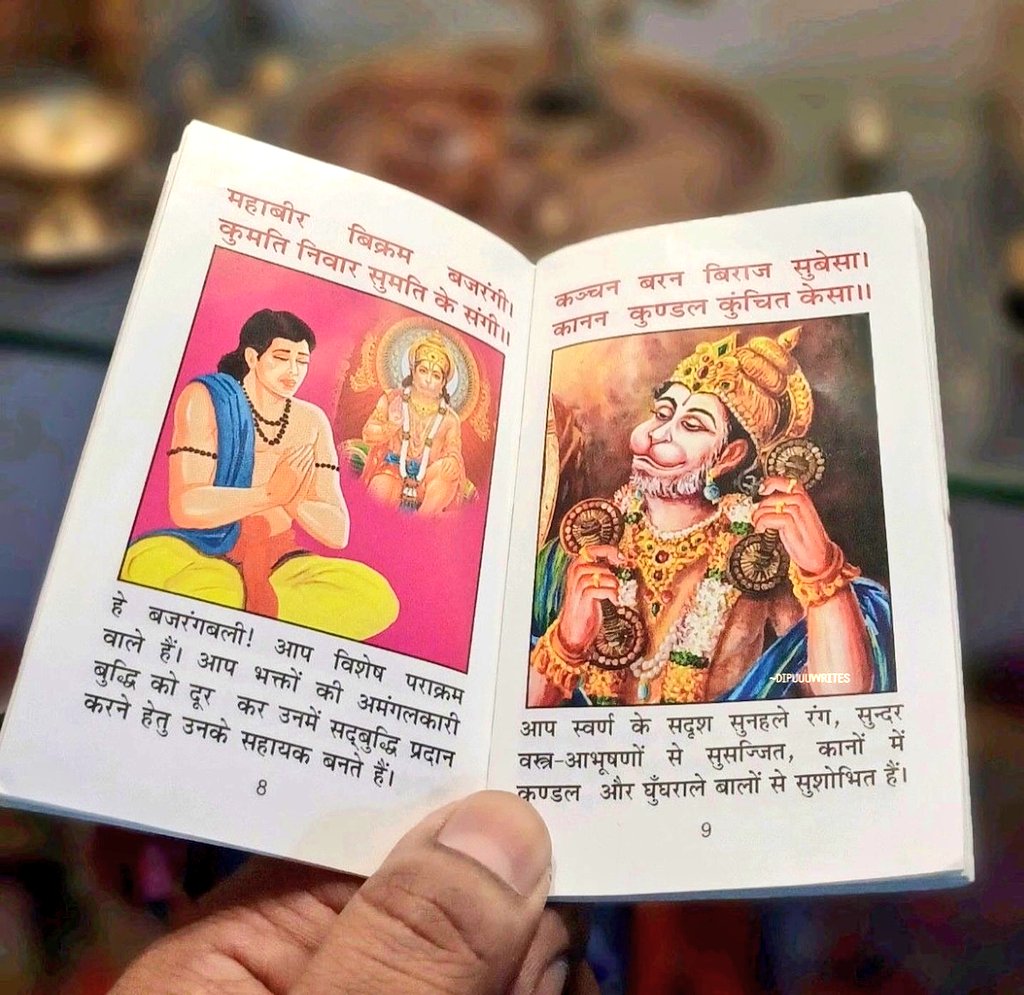 महाबीर बिक्रम बजरंगी।
कुमति निवार सुमति के संगी।।
हे बजरंगबली! आप विशेष पराक्रम
वाले हैं। आप भक्तों की अमंगलकारी
बुद्धि को दूर कर उनमें सद्बुद्धि प्रदान
करने हेतु उनके सहायक बनते हैं।
8
कञ्चन बरन बिराज सुबेसा।
कानन कुण्डल कुंचित केसा।।
~DIPUUUWRITES
आप स्वर्ण के सदृश सुनहले रंग, सुन्दर
वस्त्र-आभूषणों से सुसज्जित, कानों में
कुण्डल और घुँघराले बालों से सुशोभित हैं।
9